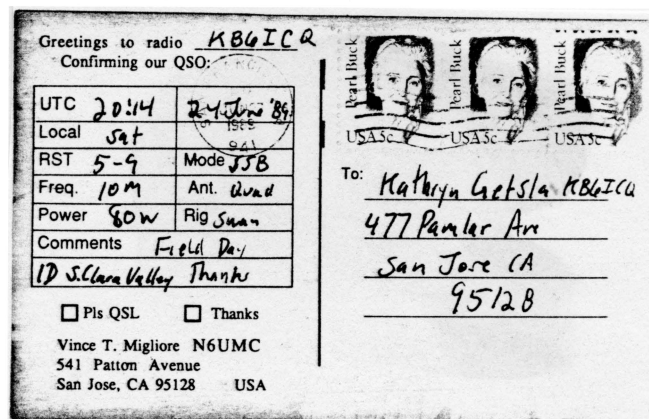 Greetings to radio KB6ICQ
Confirming our QSO:
UTC 20:14 24 June '89
Local Sat
RST 5-9 Mode SSB
Freq. 10M Ant. Quad
Power 80W Rig Swan
Comments Field Day
1D S.Clara Valley Thanks
Pls QSL Thanks
Vince T. Migliore N6UMC
541 Patton Avenue
San Jose, CA 95128 USA
1989
941
Pearl Buck
USA 5c
Pearl Buck
USA 5c
Pearl Buck
USA 5c
To: Kathryn Getsla KB6ICQ
477 Pamlar Ave
San Jose CA
95128